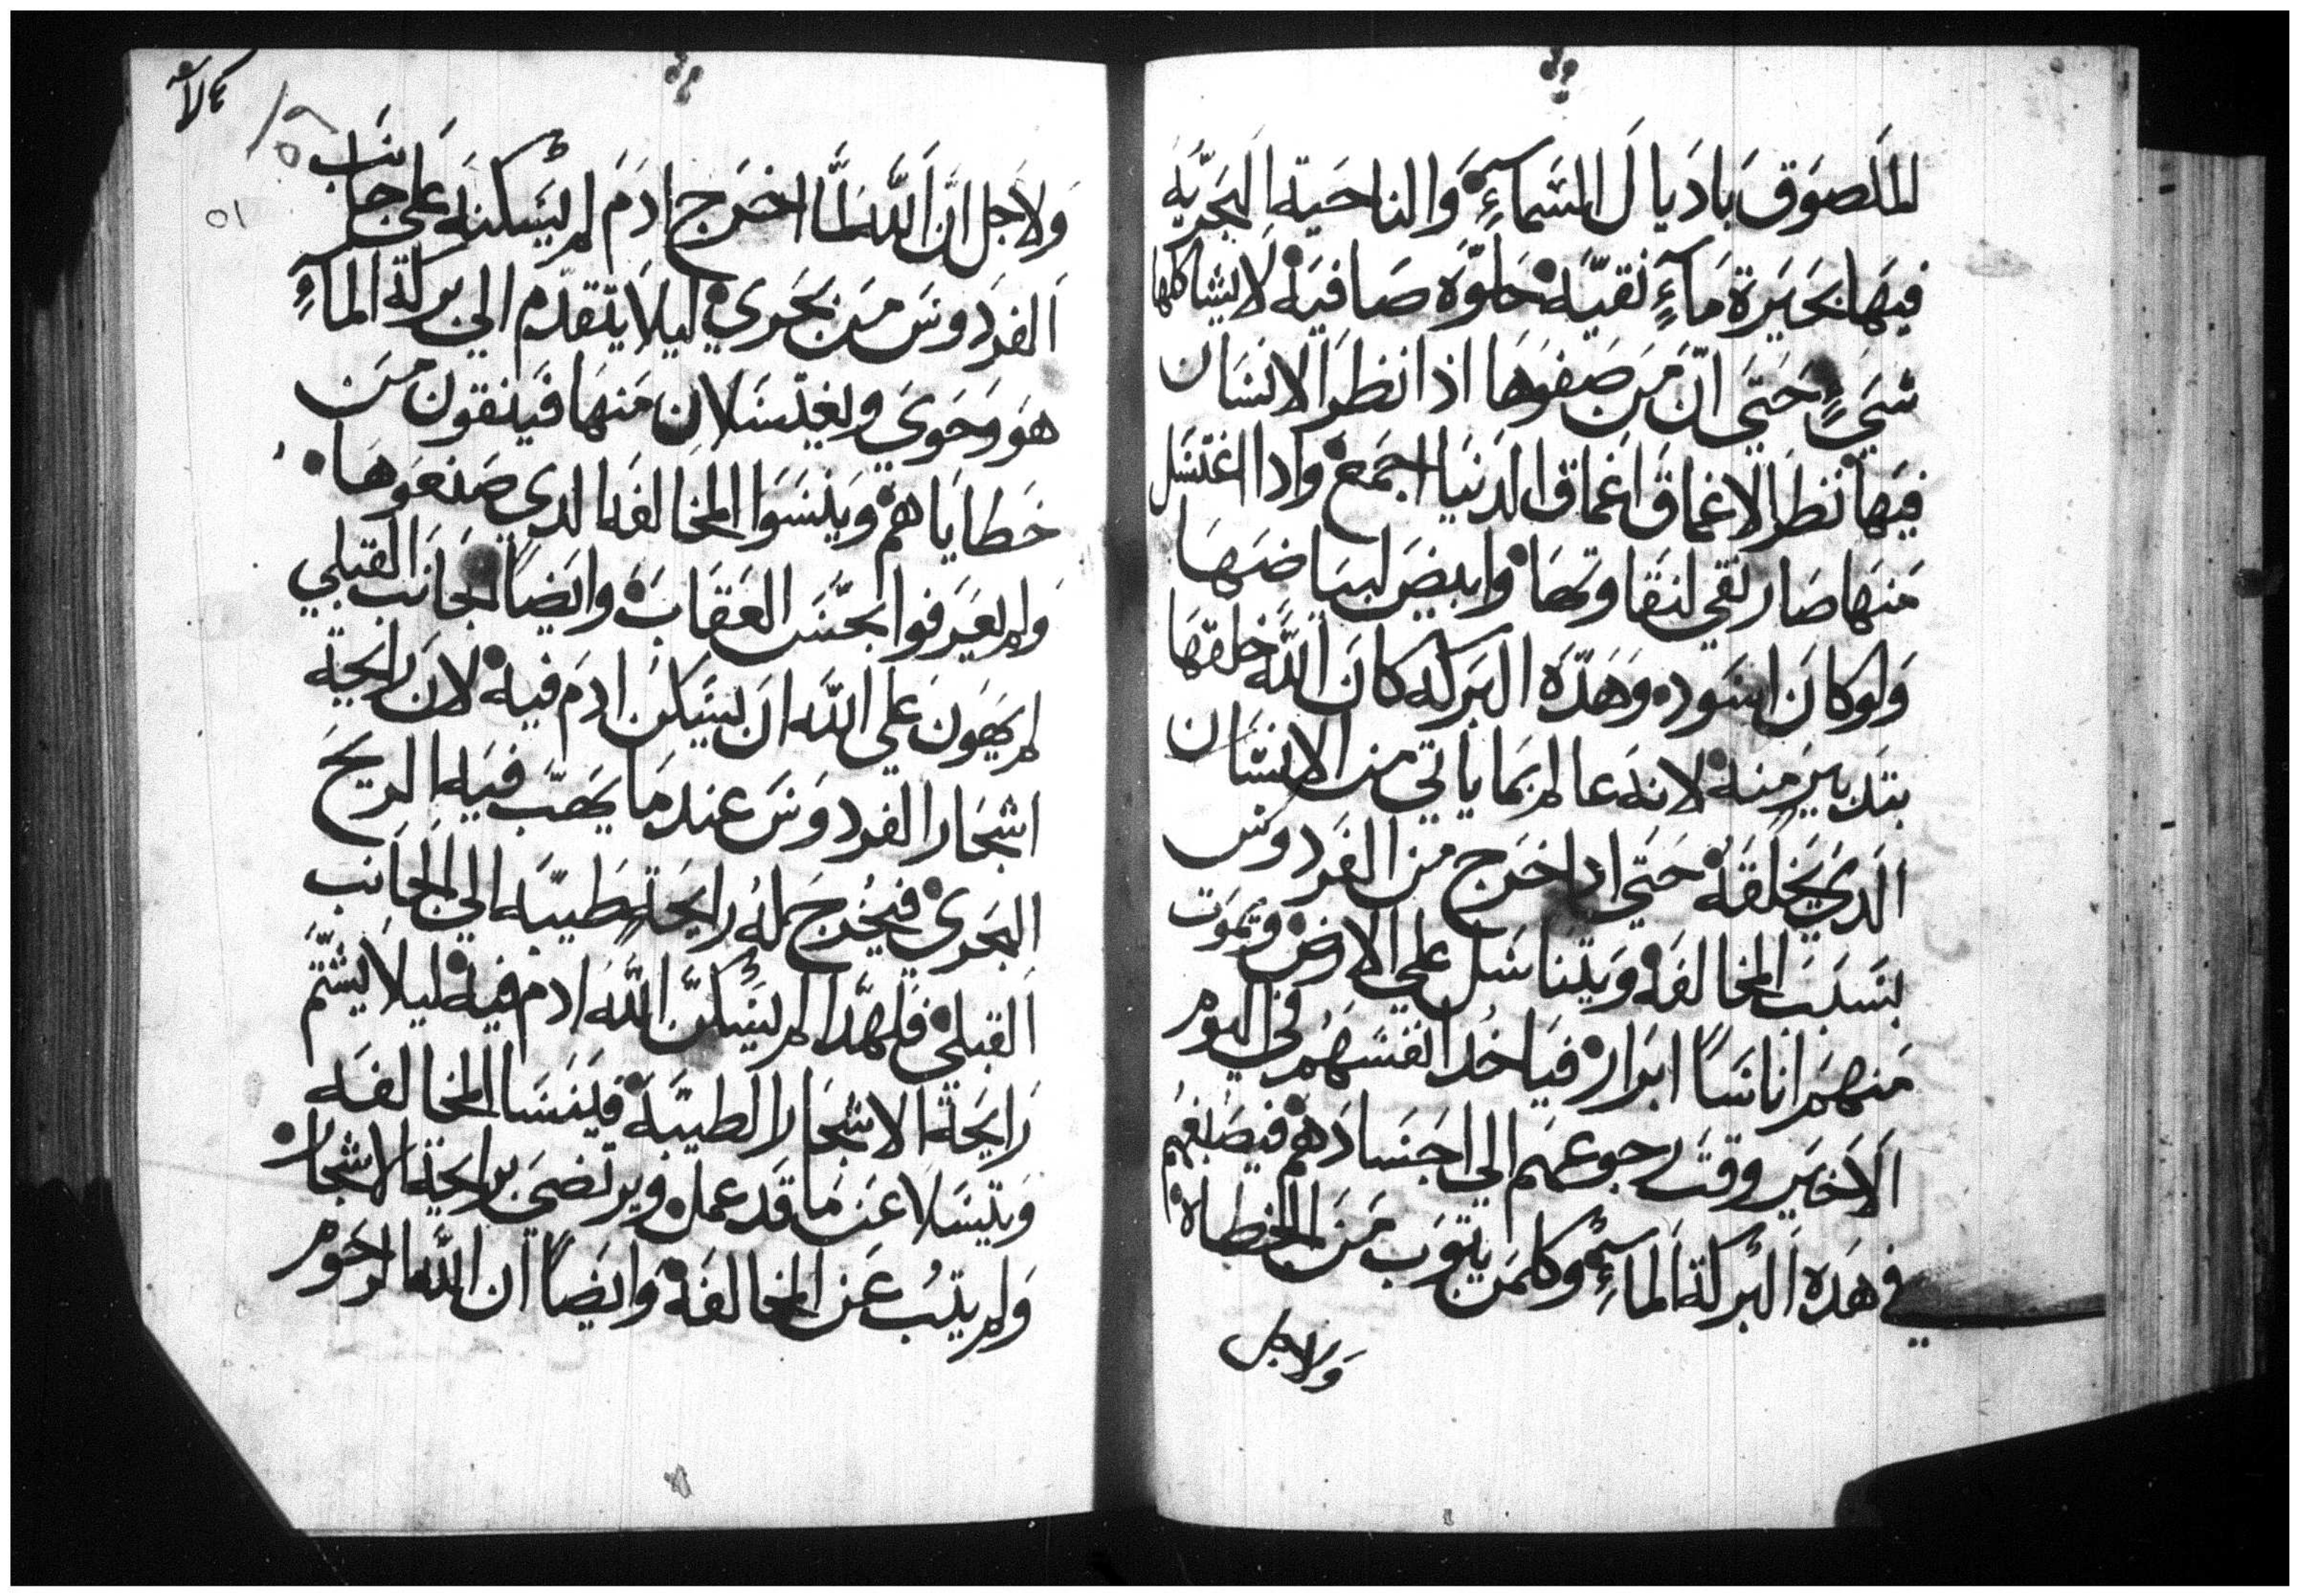 الملصوق باديال السماءِ والناحية البحريّه
فيها بحيرة ماءٍ نقيّه حلوّه صافيه لا يشاكلها
شيءٍ حتي انّ من صفوها اذا نظر الانسان
فيها نظر الاعماق اعماق الدنيا اجمع وادا اغتسل
منها صار نقي لنقاوتها وابيض لبياضها
ولو كان اسود وهدّه البركه كان اللّه خلقها
بتدبير منه لانه عالم بما ياتي من الانسان
الدي يخلقه حتي ادا خرج من الفردوس
بسبب المخالفه ويتناسل علي الارض وتموت
منهم اناساً ابرار فياخد انفسهم في اليوم
الاخير وقت رجوعهم الي اجسادهم فيصبغهم
في هده البركة الماءِ وكلمن يتوب من الخطاه
ولاجل
ولاجل انّ اللّه لمّا اخرج ادم لم يسكنه علي جانب
الفردوس من بحري ليلا يتقدّم الي بركة الماءِ
هو وحوي ويغتسلان منها فينقون من
خطاياهم وينسوا المخالفه الدي صنعوها
ولم يعرفوا بحسّ العقاب وايضاً الجانب القبلي
لم يهون علي اللّه ان يسكن ادم فيه لان رايحة
اشجار الفردوس عندما يهبّ فيه الريح
البحري فيخرج له رايحة طيبّه الي الجانب
القبلي فلهدا لم يسكنّ اللّه ادم فيه ليلا يشتّم
رايحة الاشجار الطيبّه فينسا المخالفه
ويتسلا عن ما قد عمل ويرتضي برايحة الاشجار
ولم يتُب عن المخالفه وايضاً ان اللّه الرحوم
٥١